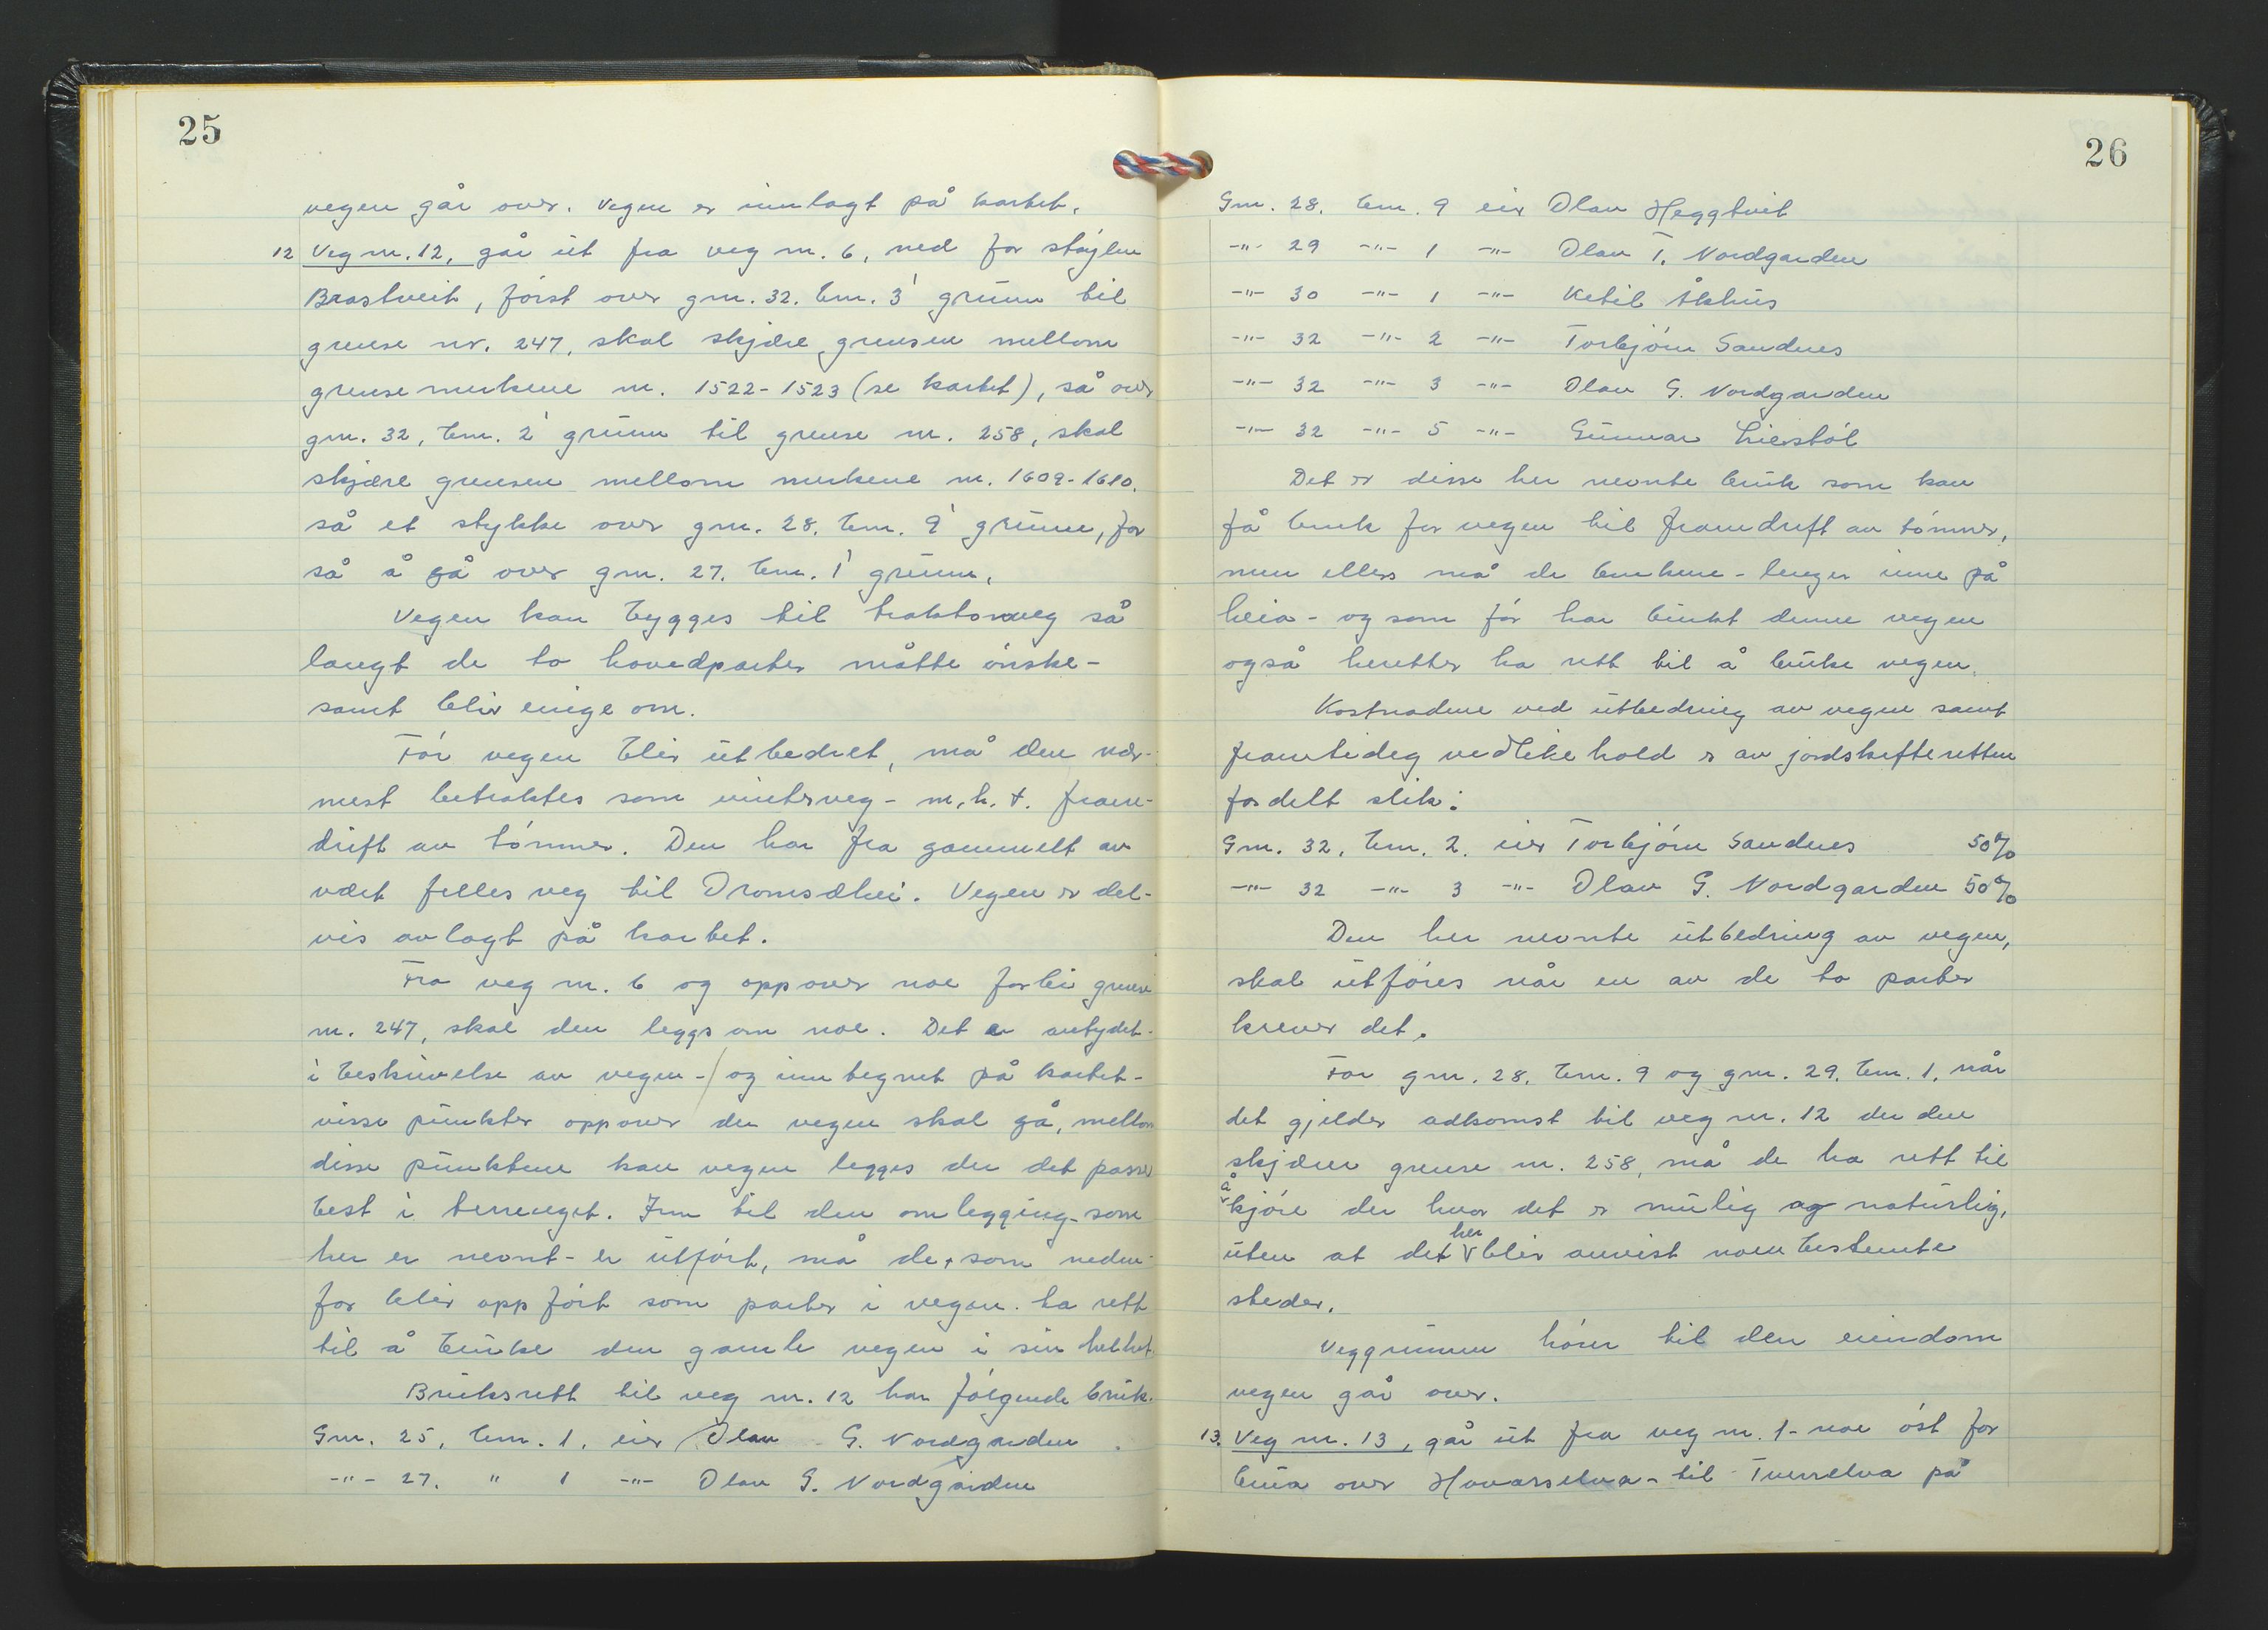 25
vegen går over. Vegen er innlagt på kartet.
12 Veg nr. 12, går ut fra veg nr. 6, ned for støylen
Brastveit, først over gnr. 32. bnr. 3' grunn til
grense nr. 247, skal skjære grensen mellom
grensemerkene nr. 1522-1523 (se kartet), så over
gnr. 32, bnr. 2' grunn til grense nr. 258, skal
skjære grensen mellom merkene nr. 1609-1610.
så et stykke over gnr. 28. bnr. 9' grunn, for
så å gå over gnr. 27. bnr. 1' grunn.
Vegen kan bygges til traktorveg så
langt de to hovedparter måtte ønske-
samt blir enige om.
Før vegen blir utbedret, må den nær-
mest betraktes som vinterveg - m.h.t. fram-
drift av tømmer. Den har fra gammelt av
vært felles veg til Dromsdhei. Vegen er del-
vis avlagt på kartet.
Fra veg nr. 6 og oppover noe forbi grense
nr. 247, skal den leggs om noe. Det er antydet-
i beskrivelse av vegen-/og inntegnet på kartet-
visse punkter oppover der vegen skal gå, mellom
disse punktene kan vegen legges der det passer
best i terrenget. Inn til den omlegging-som
her er nevnt- er utført, må de, som neden-
for blir oppført som parter i vegen. ha rett
til å bruke den gamle vegen i sin helhet.
Bruksrett til veg nr. 12 har følgende bruk.
Gnr. 25, bnr. 1. eier Olav G. Nordgarden
-"- 27. " 1 -"- Olav G. Nordgarden
26
Gnr. 28. bnr. 9 eier Olav Heggtveit
-"- 29 -"- 1 -"- Olav T. Nordgarden
-"- 30 -"- 1 -"- Ketil Åkhus
-"- 32 -"- 2 -"- Torbjørn Sandnes
-"- 32 -"- 3 -"- Olav G. Nordgarden
-"- 32 -"- 5 -"- Gunnar Liestøl
Det er disse her nevnte bruk som kan
få bruk for vegen til framdrift av tømmer,
men ellers må de brukene - lenger inne på
heia - og som før har brukt denne vegen
også heretter ha rett til å bruke vegen.
Kostnadene ved utbedring av vegen samt
framtidig vedlikehold er av jordskifteretten
fordelt slik:
Gnr. 32. bnr. 2. eier Torbjørn Sandnes 50%
-"- 32 -"- 3 -"- Olav G. Nordgarden 50%
Den her nevnte utbedring av vegen,
skal utføres når en av de to parter
krever det.
For gnr. 28. bnr. 9 og gnr. 29. bnr. 1. når
det gjelder adkomst til veg nr. 12 der den
skjærer grense nr. 258, må de ha rett til
å kjøre der hvor det er mulig og naturlig,
uten at det her blir anvist noen bestemte
steder.
Veggrunnen hører til den eiendom
vegen går over.
13. Veg nr. 13, går ut fra veg nr. 1- noe øst for
brua over Hovarselva - til Tverrelva på